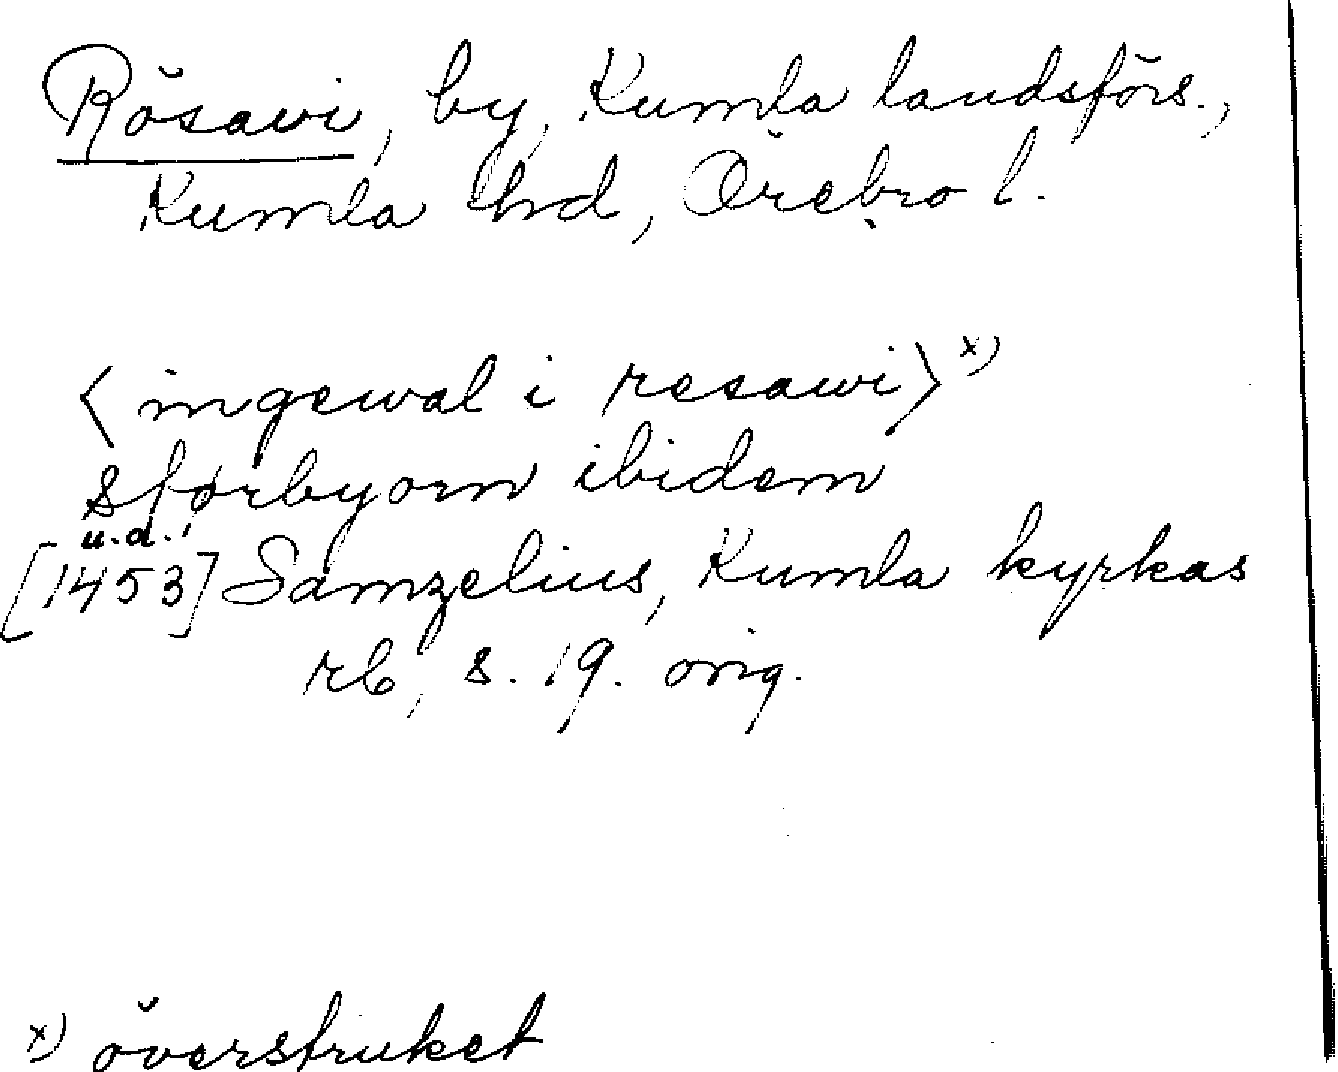 Rösavi, by, Kumla landsförs.,
Kumla hd, Örebro l.
<ingewal i resawi> x)
sforbyorn ibidem
u.d.
[1453] Samzelius, Kumla kyrkas
rb, s. 19. orig.
x) överstruket